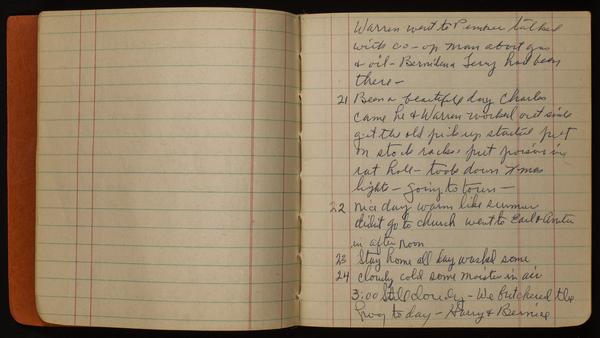 Warren went to Pender talked
with co-op man about gas
& oil - Bernidena Terry had been
there -
21 Been a beautiful day Charles
came he & Warren worked out side
got the old pick up started put
on stock racks & put poison in
rat hole - took down X-mas
lights - going to town -
22 nice day warm like summer
didn't go to church went to Earl & Anita
in after noon
23 Stay home all day washed some
24 cloudy cold some moister in air
3:00 Still cloudy - We butchered the
hog to day - Harry & Bernice